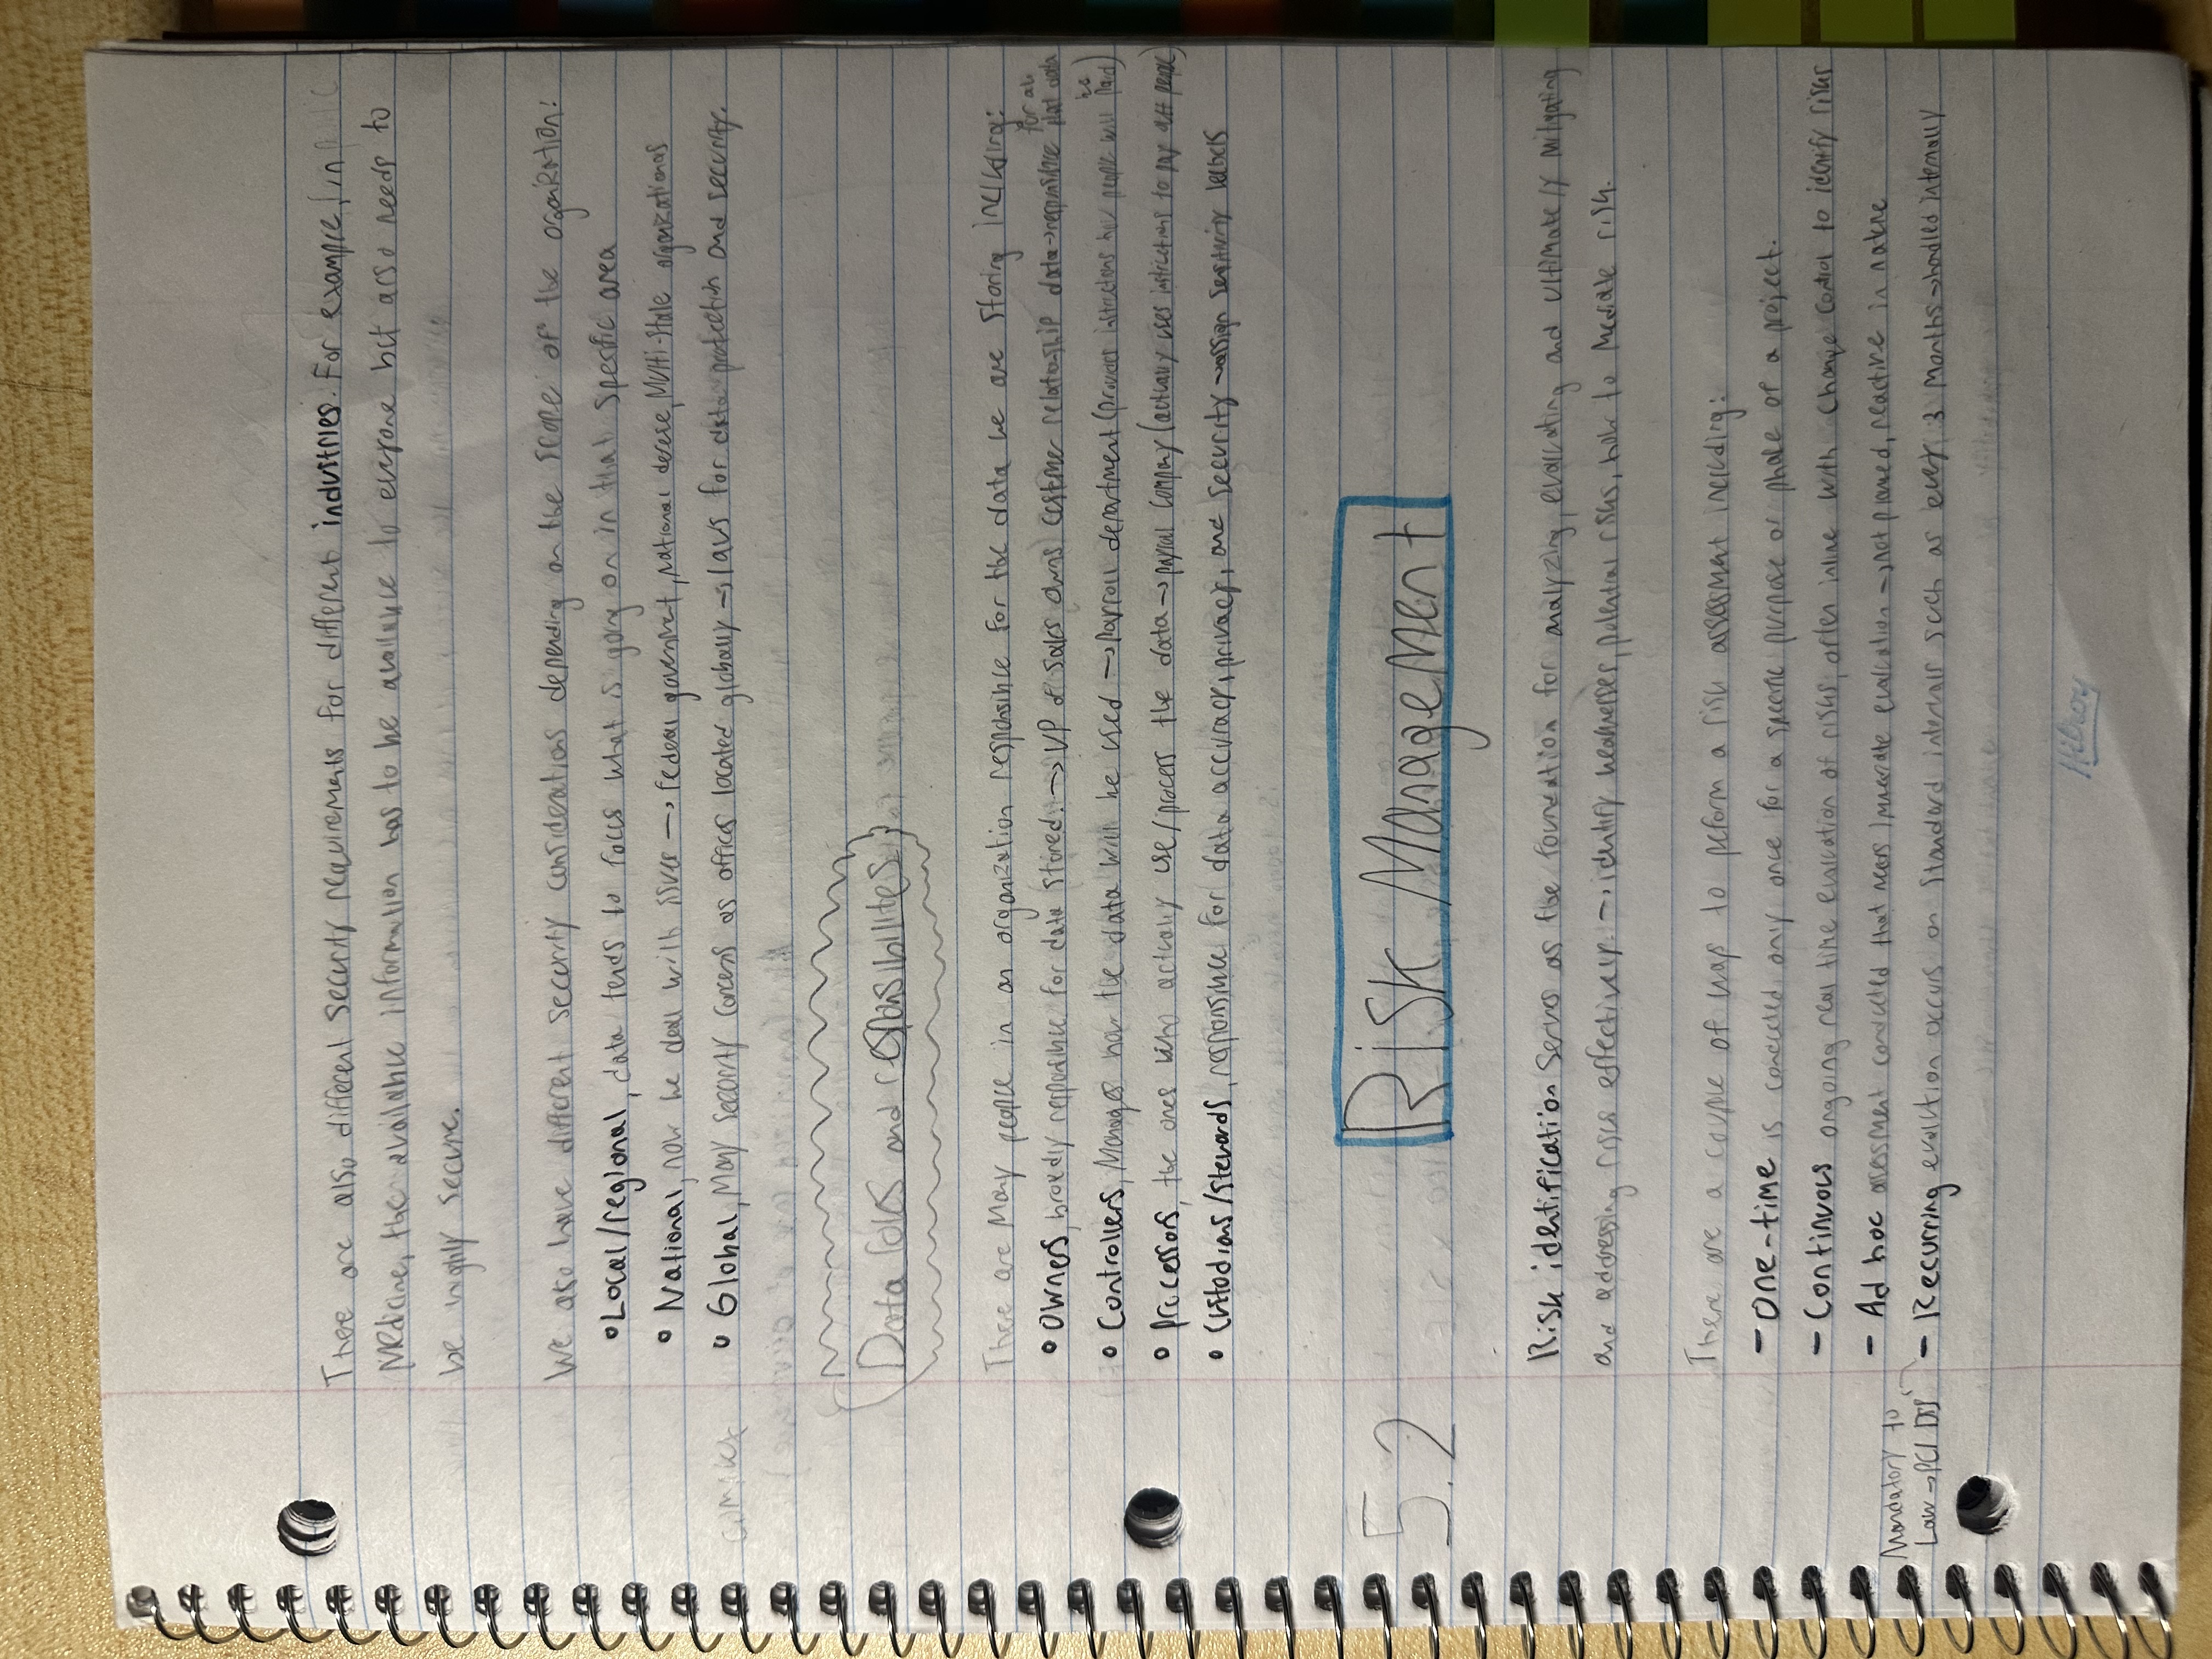 There are also different security requirements for different industries. For example, in
Medicine, the available information has to be available to everyone but also needs to
be highly secure.
We also have different security considerations depending on the scope of the oganization:
• Local/regional, data tends to focus what is going on in that specific area
• National, now we deal with issues → federal government, national defense, Multi-state organizations
• Global, Many security concerns as offices located globally → laws for data protection and security.
Data roles and responsibilites
There are Many people in an organization responsible for the data we are storing including:
• Owners, broadly responsible for data stored. → VP of sales owns customer relationship data → responsible for all that data
• Controllers, Manages how the data will be used → payroll department (provides instructions how people will be paid)
• Processors, the ones who actually use/process the data → payroll company (actually uses instructions to pay people)
• Custodians/stewards, responsible for data accuracy, privacy, and security → assign sensitivity labels
5.2 Risk Management
Risk identification serves as the foundation for analyzing, evaluating and ultimately mitigating
and addressing risks effectively. → identify weaknesses, potential risks, how to mediate risk.
There are a couple of ways to peform a risk assessment including:
- One-time is conducted only once for a specific purpose or phase of a project.
- Continuous ongoing real time evaluation of risks, often inline with change control to identify risks
- Ad hoc assessment conducted that needs immediate evaluation → not planned, reactive in nature
Mandatory to
Law → PCI DSS
- Recurring evalution occurs on standard intervals such as every 3 Months → handled internally
Hilroy